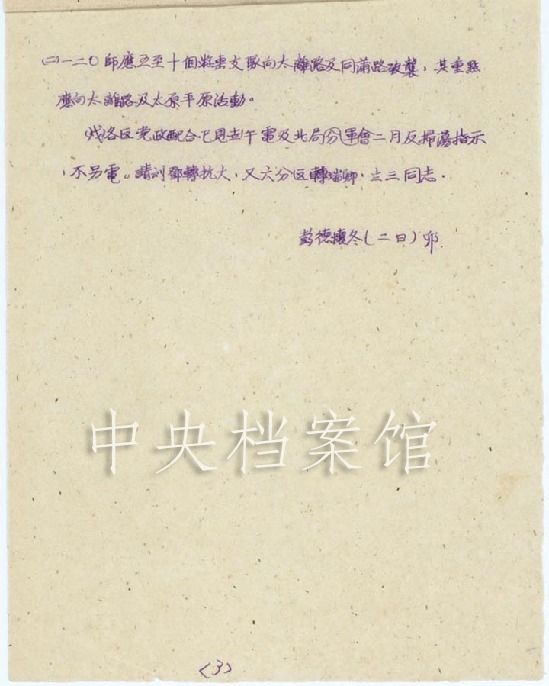 ㈡一二〇師應五至十個營要支隊向太離路及同蒲路破襲，其重點
應向太離路及太原平原活動。
戏各区党政配合已見左午電及北局分軍會二月反掃蕩指示
，不另電。請刘鄧轉抗大，又六分区轉瑞卿，立三同志。
彭德懷冬(二日)卯
中央档案馆
(3)